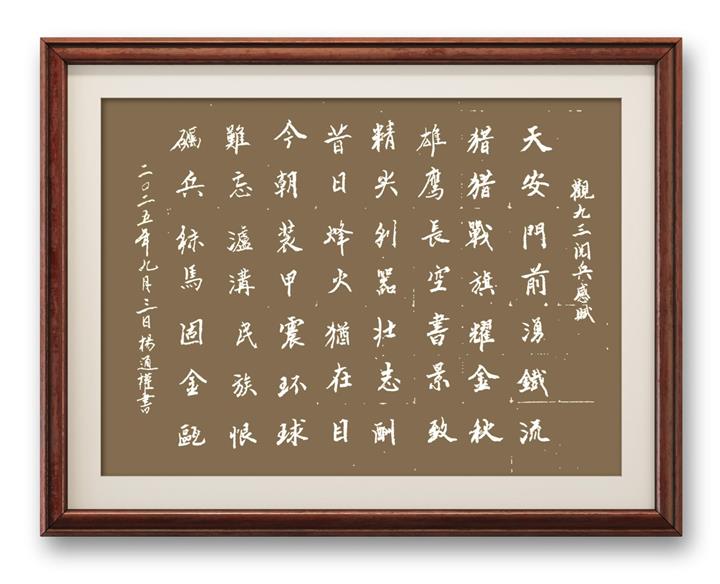 觀九三閲兵感赋
天安門前湧鐵流
猎猎戰旗耀金秋
雄鹰長空書景致
精尖利器壮志酬
昔日烽火猶在目
今朝装甲震环球
難忘瀘溝民族恨
礪兵秣馬固金甌
二〇二五年九月三日楊通權書